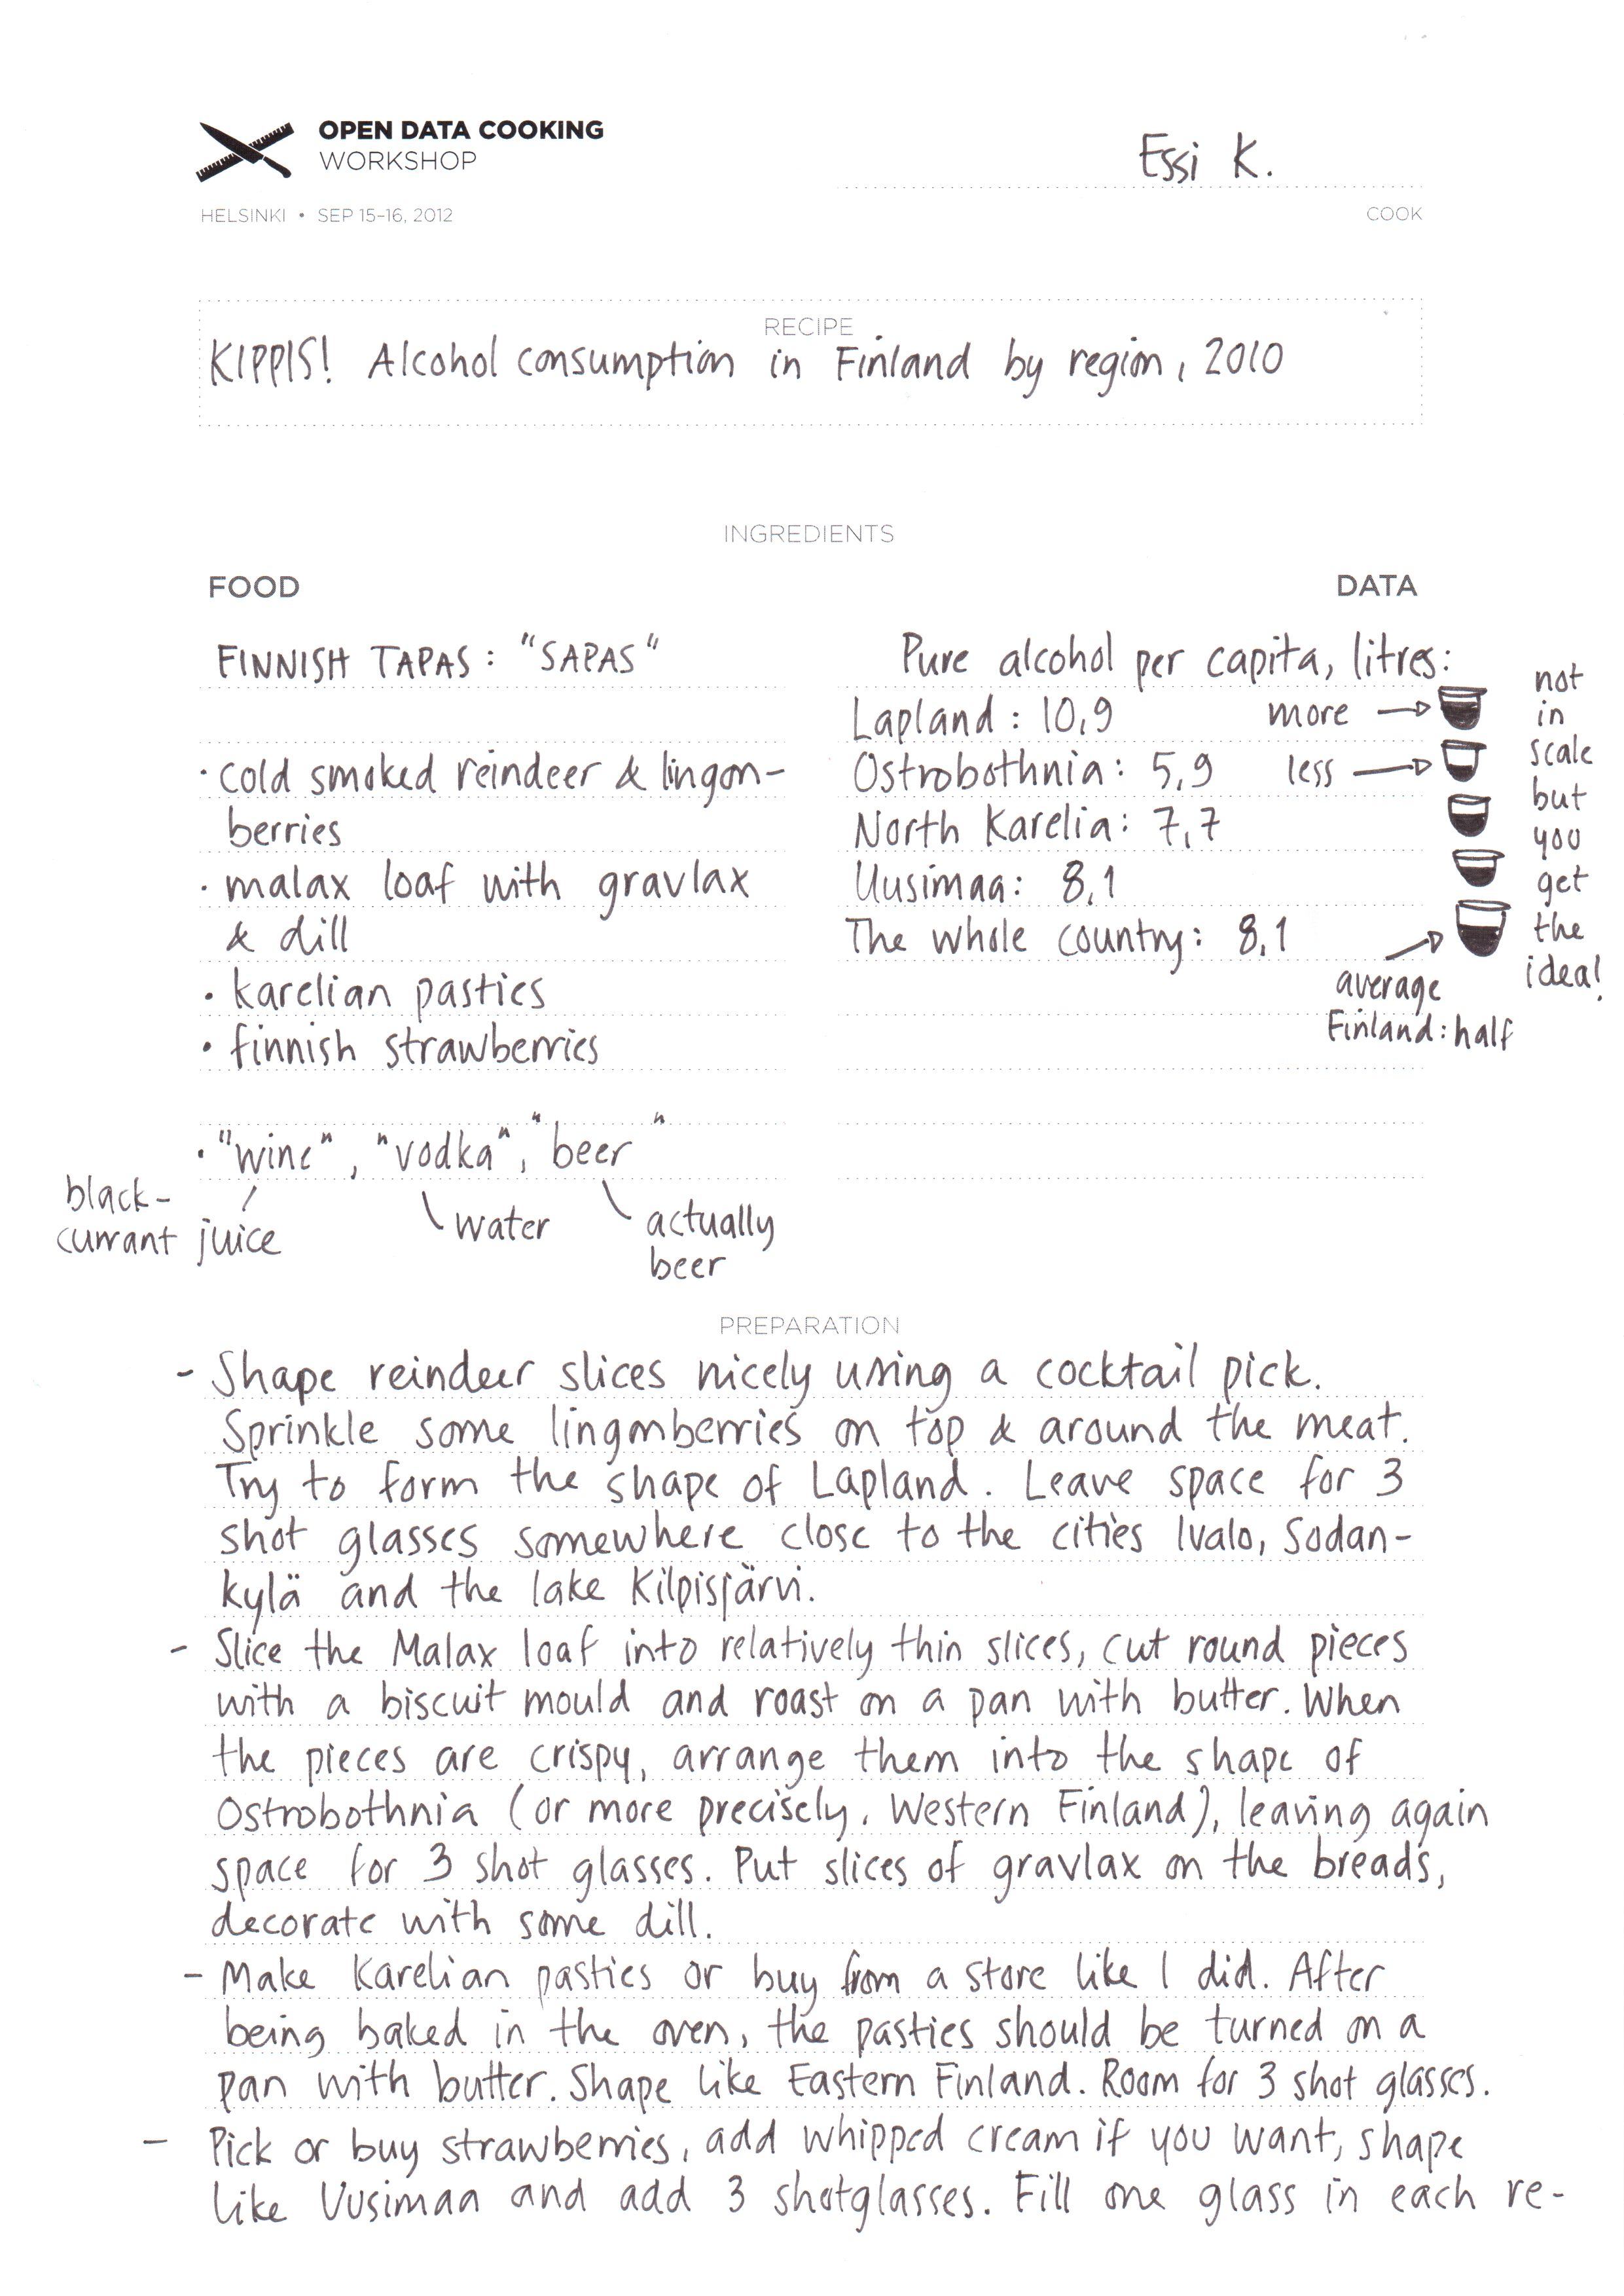 OPEN DATA COOKING
WORKSHOP
HELSINKI • SEP 15–16, 2012
Essi K.
COOK
RECIPE
KIPPIS! Alcohol consumption in Finland by region, 2010
INGREDIENTS
FOOD
FINNISH TAPAS: "SAPAS"
· cold smoked reindeer & lingon-
berries
· malax loaf with gravlax
& dill
· karelian pasties
· finnish strawberries
· "wine", "vodka", "beer"
black-
currant juice
water
actually
beer
DATA
Pure alcohol per capita, litres:
Lapland: 10,9 more →
Ostrobothnia: 5,9 less →
North Karelia: 7,7
Uusimaa: 8,1
The whole country: 8,1
average
Finland: half
not
in
scale
but
you
get
the
idea!
PREPARATION
- Shape reindeer slices nicely using a cocktail pick.
Sprinkle some lingonberries on top & around the meat.
Try to form the shape of Lapland. Leave space for 3
shot glasses somewhere close to the cities Ivalo, Sodan-
kylä and the lake Kilpisjärvi.
- Slice the Malax loaf into relatively thin slices, cut round pieces
with a biscuit mould and roast on a pan with butter. When
the pieces are crispy, arrange them into the shape of
Ostrobothnia (or more precisely, Western Finland), leaving again
space for 3 shot glasses. Put slices of gravlax on the breads,
decorate with some dill.
- Make Karelian pasties or buy from a store like I did. After
being baked in the oven, the pasties should be turned on a
pan with butter. Shape like Eastern Finland. Room for 3 shot glasses.
- Pick or buy strawberries, add whipped cream if you want, shape
like Uusimaa and add 3 shotglasses. Fill one glass in each re-